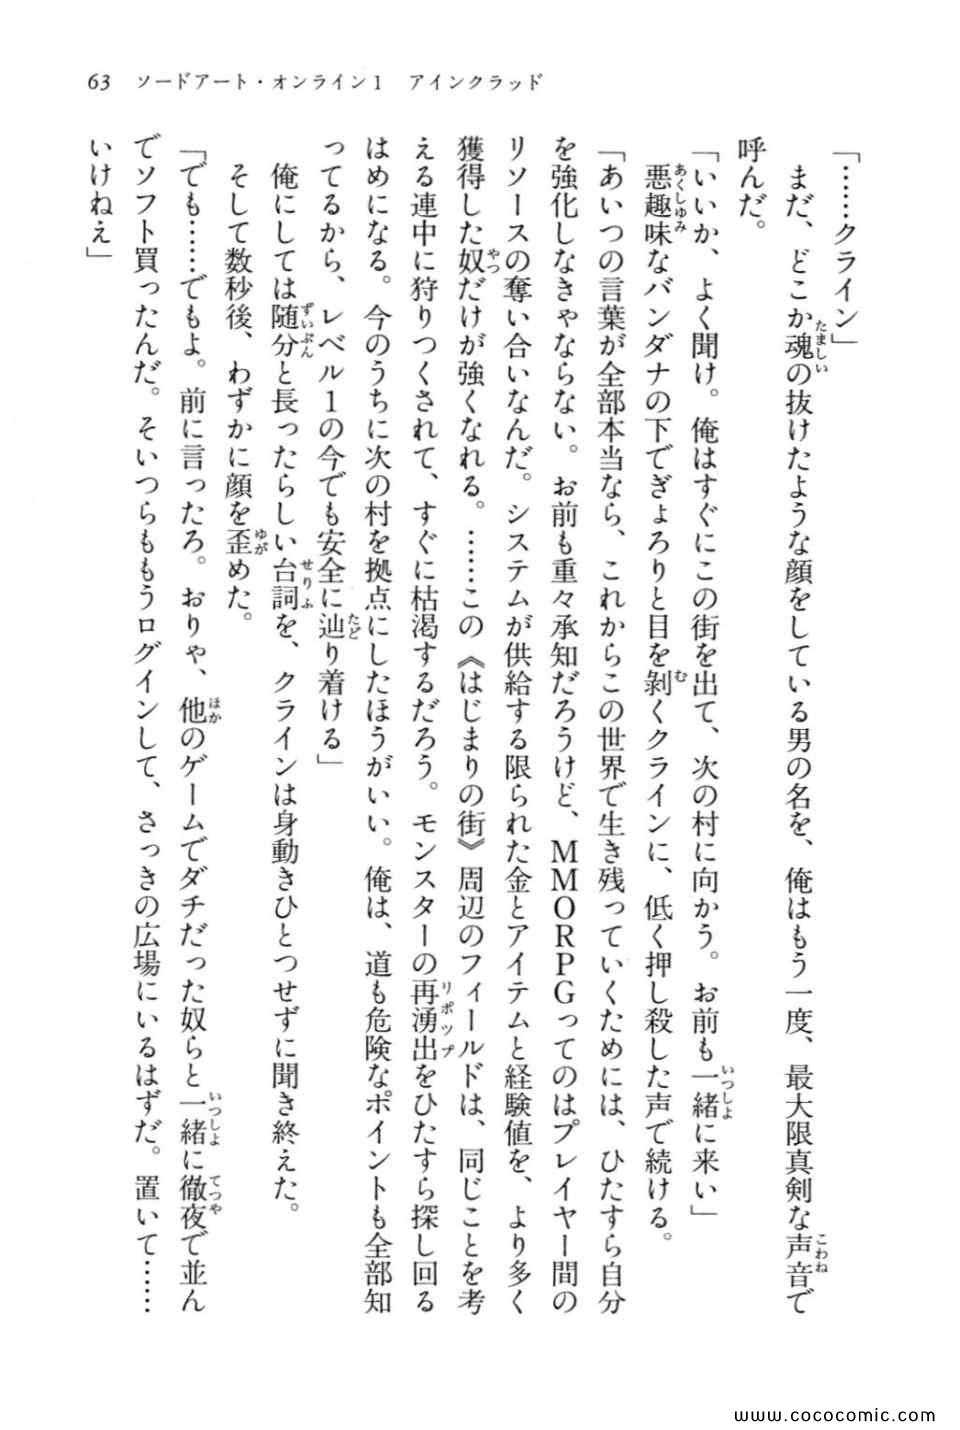 63　ソードアート・オンライン1　アインクラッド
「……クライン」
　まだ、どこか魂の抜けたような顔をしている男の名を、俺はもう一度、最大限真剣な声音で
呼んだ。
「いいか、よく聞け。俺はすぐにこの街を出て、次の村に向かう。お前も一緒に来い」
　悪趣味なバンダナの下でぎょろりと目を剝くクラインに、低く押し殺した声で続ける。
「あいつの言葉が全部本当なら、これからこの世界で生き残っていくためには、ひたすら自分
を強化しなきゃならない。お前も重々承知だろうけど、ＭＭＯＲＰＧってのはプレイヤー間の
リソースの奪い合いなんだ。システムが供給する限られた金とアイテムと経験値を、より多く
獲得した奴だけが強くなれる。……この《はじまりの街》周辺のフィールドは、同じことを考
える連中に狩りつくされて、すぐに枯渇するだろう。モンスターの再湧出をひたすら探し回る
はめになる。今のうちに次の村を拠点にしたほうがいい。俺は、道も危険なポイントも全部知
ってるから、レベル１の今でも安全に辿り着ける」
　俺にしては随分と長ったらしい台詞を、クラインは身動きひとつせずに聞き終えた。
　そして数秒後、わずかに顔を歪めた。
「でも……でもよ。前に言ったろ。おりゃ、他のゲームでダチだった奴らと一緒に徹夜で並ん
でソフト買ったんだ。そいつらももうログインして、さっきの広場にいるはずだ。置いて……
いけねえ」
www.cococomic.com